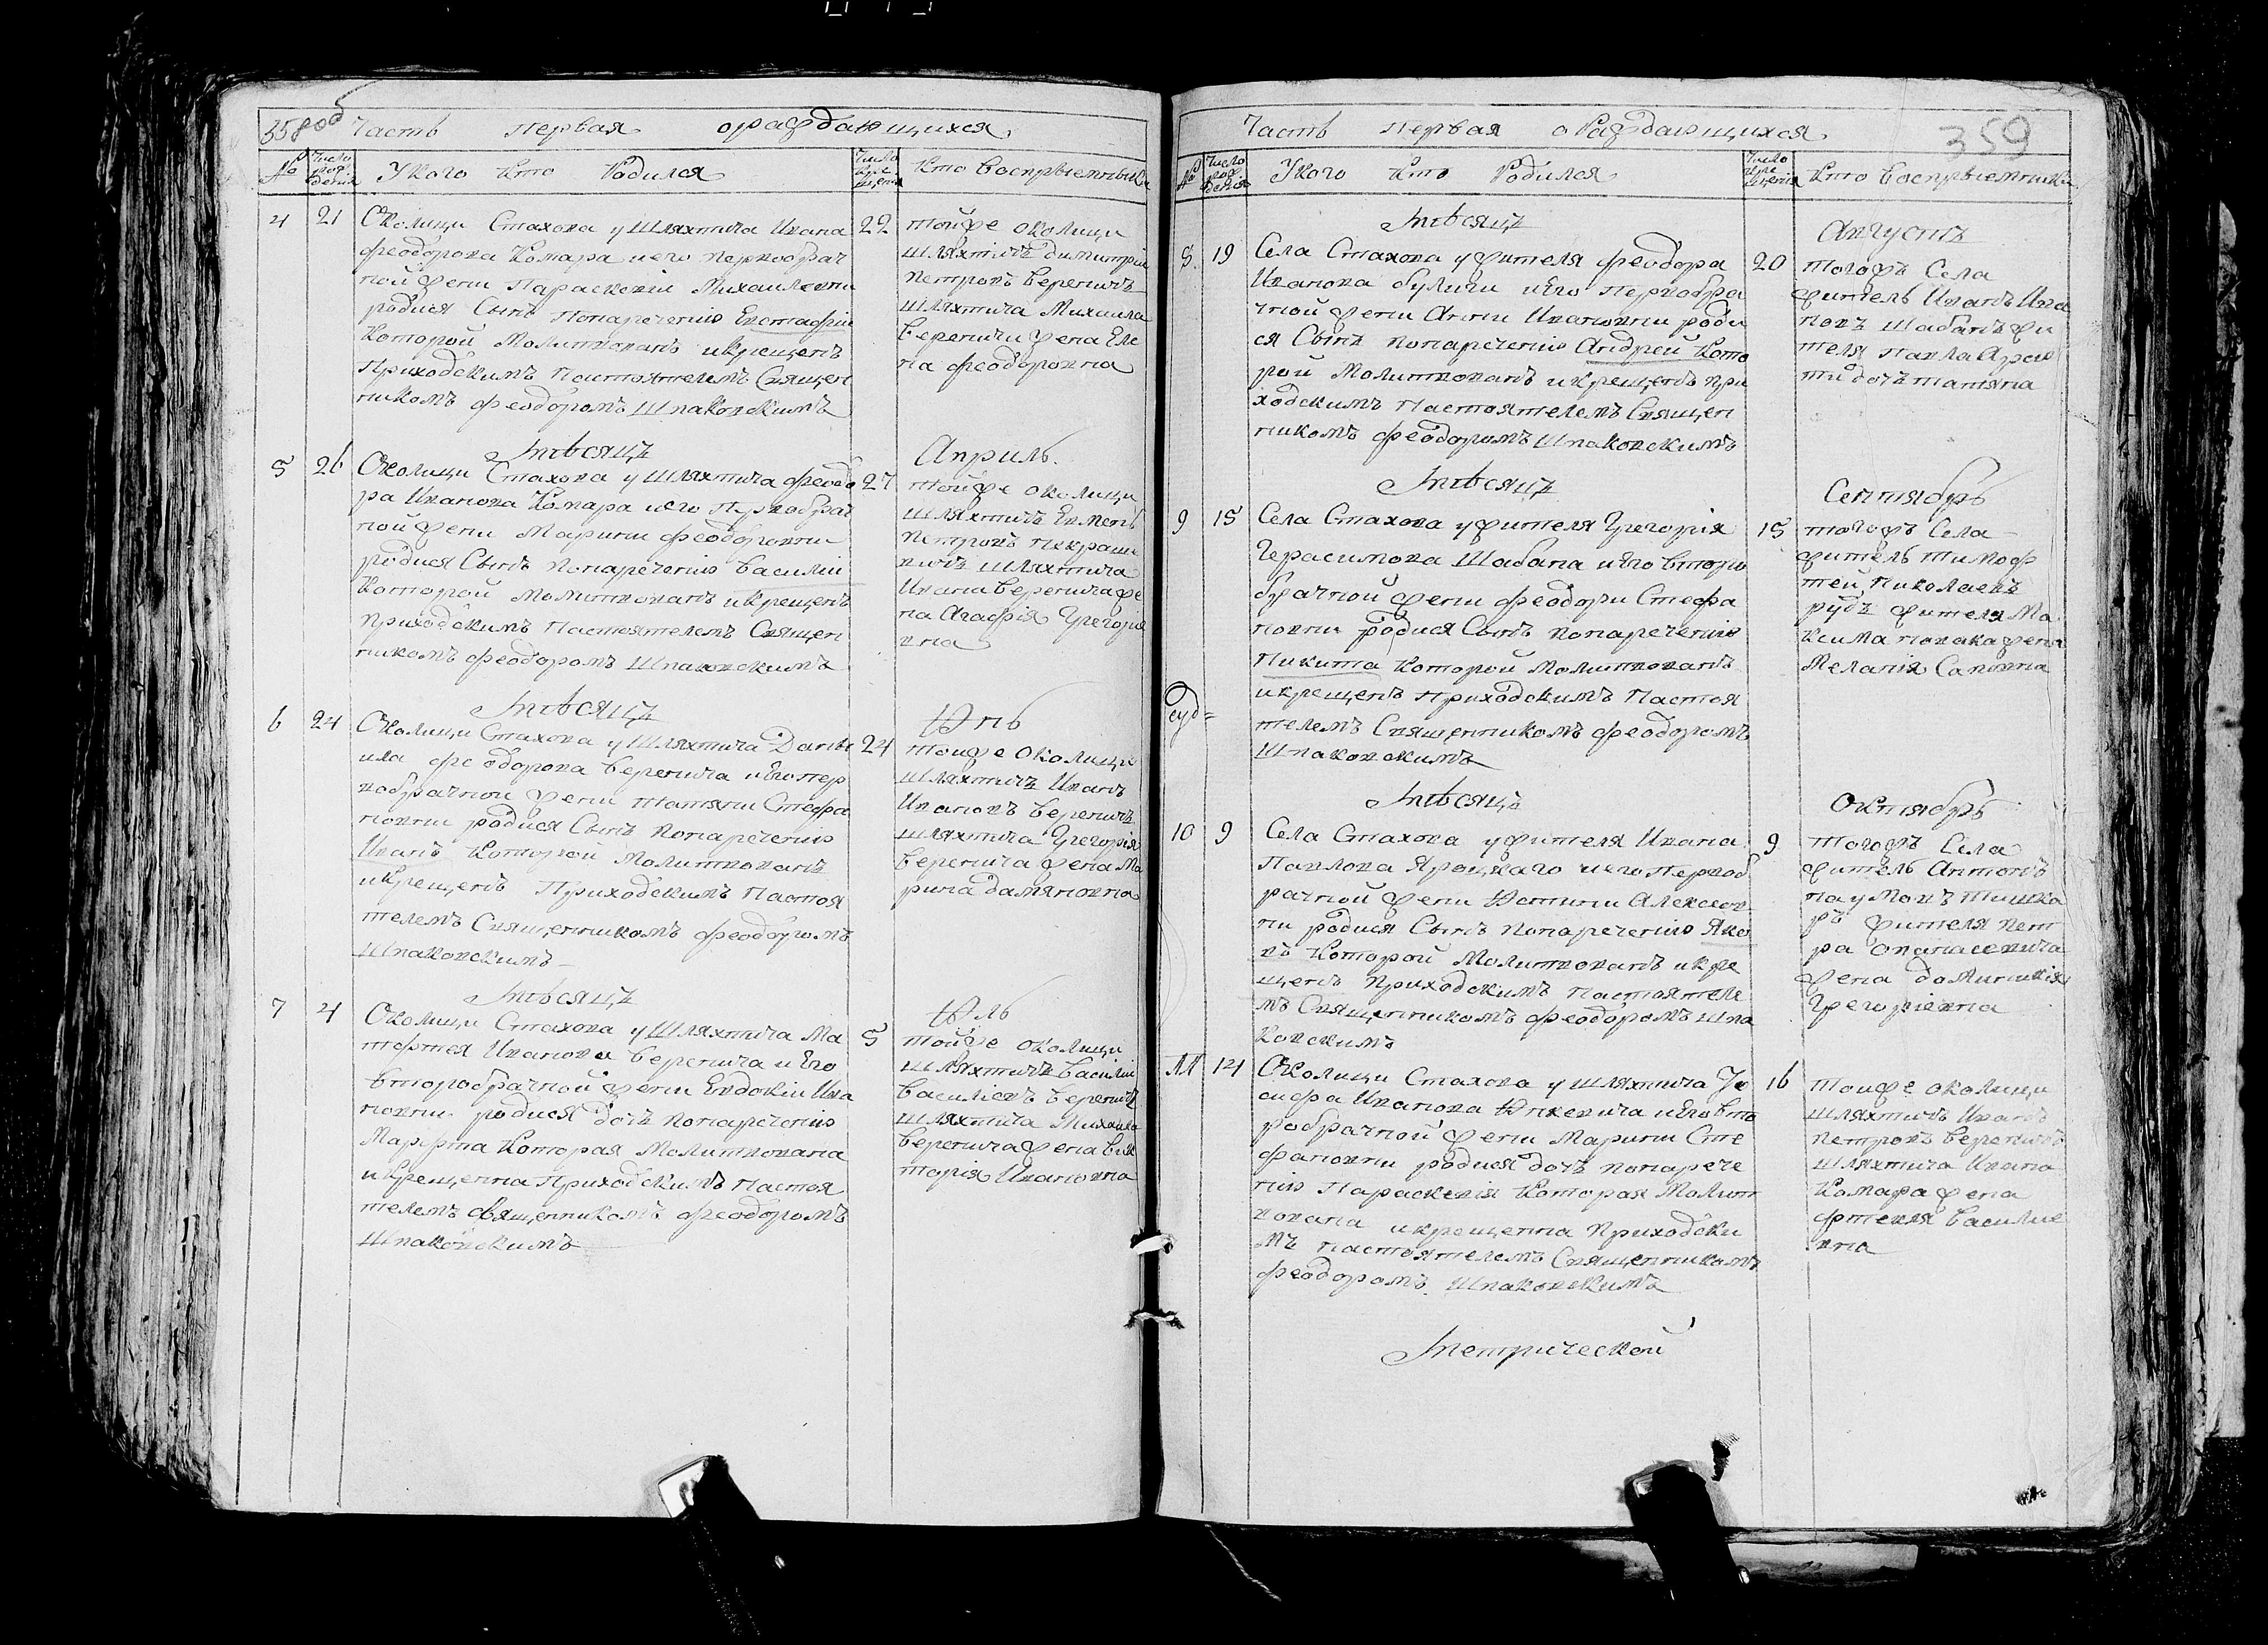 358об
Часть первая ораждающихся
№ Число рождения У кого кто родился Число крещения Кто восприемники
4 21 22
Околицы Стахова у шляхтича Ивана
феодорова Комара и его первобрач
ной жены Параскевии Михаиловны
родися Сынъ понаречению Евстафiи
Которой Молитвованъ и крещенъ
Приходскимъ Настоятелемъ Священ
никомъ феодоромъ Шпаковскимъ
тойже околицы
шляхтичъ димитрiи
петровъ вереничъ
шляхтича Михаила
веренича жена Еле
на феодоровна
Мѣсяцъ Априль.
5 26 27
Околицы Стахова у шляхтича феодо
ра Иванова Комара и его Первобрач
ной жены Марины феодоровны
родися Сынъ понаречению василии
Которой молитвованъ и крещенъ
приходскимъ настоятелемъ Священ
никомъ феодоромъ Шпаковскимъ
тойже околицы
шляхтичъ Евменъ
петровъ некраше
вичъ шляхтича
Ивана веренича же
на Агафiя Григорие
вна
Мѣсяцъ Юнь
6 24 24
Околицы Стахова у шляхтича Данiи
ила феодорова веренича и его пер
вобрачной жены татяны Стефа
новны родися Сынъ понаречению
Иванъ Которой молитвованъ
и крещенъ Приходскимъ Настоя
телемъ Священникомъ феодоромъ
Шпаковскимъ
тоиже околицы
шляхтичъ Иванъ
Ивановъ вереничъ
шляхтича Григорiя
веренича жена Ма
рина дамяновна
Мѣсяцъ Юль
7 4 5
Околицы Стахова у шляхтича Ма
тофтея Иванова веренича и его
второбрачной жены Евдокiи Ива
новны родися дочъ понаречению
Марфта Которая Молитвована
и крещенна Приходскимъ настоя
телемъ священникомъ феодоромъ
Шпаковскимъ
тойже околицы
шляхтичъ василiи
василiевъ вереничъ
шляхтича Михаила
веренича жена вик
торiя Ивановна
359
Часть первая ораждающихся
№ Число рождения У кого кто родился Число крещения Кто восприемники
Мѣсяцъ Августъ
8 19 20
Села Стахова ужителя феодора
Иванова булыги и его первобра
чной жены Анны Ивановны роди
ся Сынъ понаречению Андрей Кото
рой Молитвованъ и крещенъ при
ходскимъ Настоятелемъ Священ
никомъ феодоромъ Шпаковскимъ
тогожъ Села
житель Иванъ Ива
новъ Шабанъ жи
теля павла
дочъ татяна
Мѣсяцъ Септябръ
9 15 15
Села Стахова ужителя Григорiя
Герасимова Шабана и его второ
брачной жены феодоры Стефа
новны родися Сынъ понаречению
Никита Которой молитвованъ
и крещенъ приходскимъ Настоя
телемъ Священникомъ феодоромъ
Шпаковскимъ
тогожъ Села
житель тимоф
тей николаевъ
рудъ жителя Ма
ксима новака жена
Меланiя Савовна
Мѣсяцъ Октябръ
10 9 9
Села Стахова ужителя Ивана
Павлова Ярошкаго и его первоб
рачной жены Юстины Алексеев
ны родися Сынъ понаречению Яко
въ Которой Молитвованъ и кре
щенъ приходскимъ настоятеле
мъ Священникомъ феодоромъ Шпа
ковскимъ
тогожъ Села
житель Антонъ
наумовъ тишка
ръ жителя пет
ра опанасевича
жена доминикiя
Григориевна
11 14 16
Околицы Стахова у шляхтича Iо
сифа Иванова Юпкевича и его вто
робрачной жены Марины Сте
фановны родися дочъ понарече
нию Параскевiя Которая Молит
вована и крещенна приходски
мъ настоятелемъ Священникомъ
феодоромъ Шпаковскимъ
тоиже околицы
шляхтичъ Иванъ
петровъ вереничъ
шляхтича Ивана
Комара жена
фтекля василие
вна
Метрической